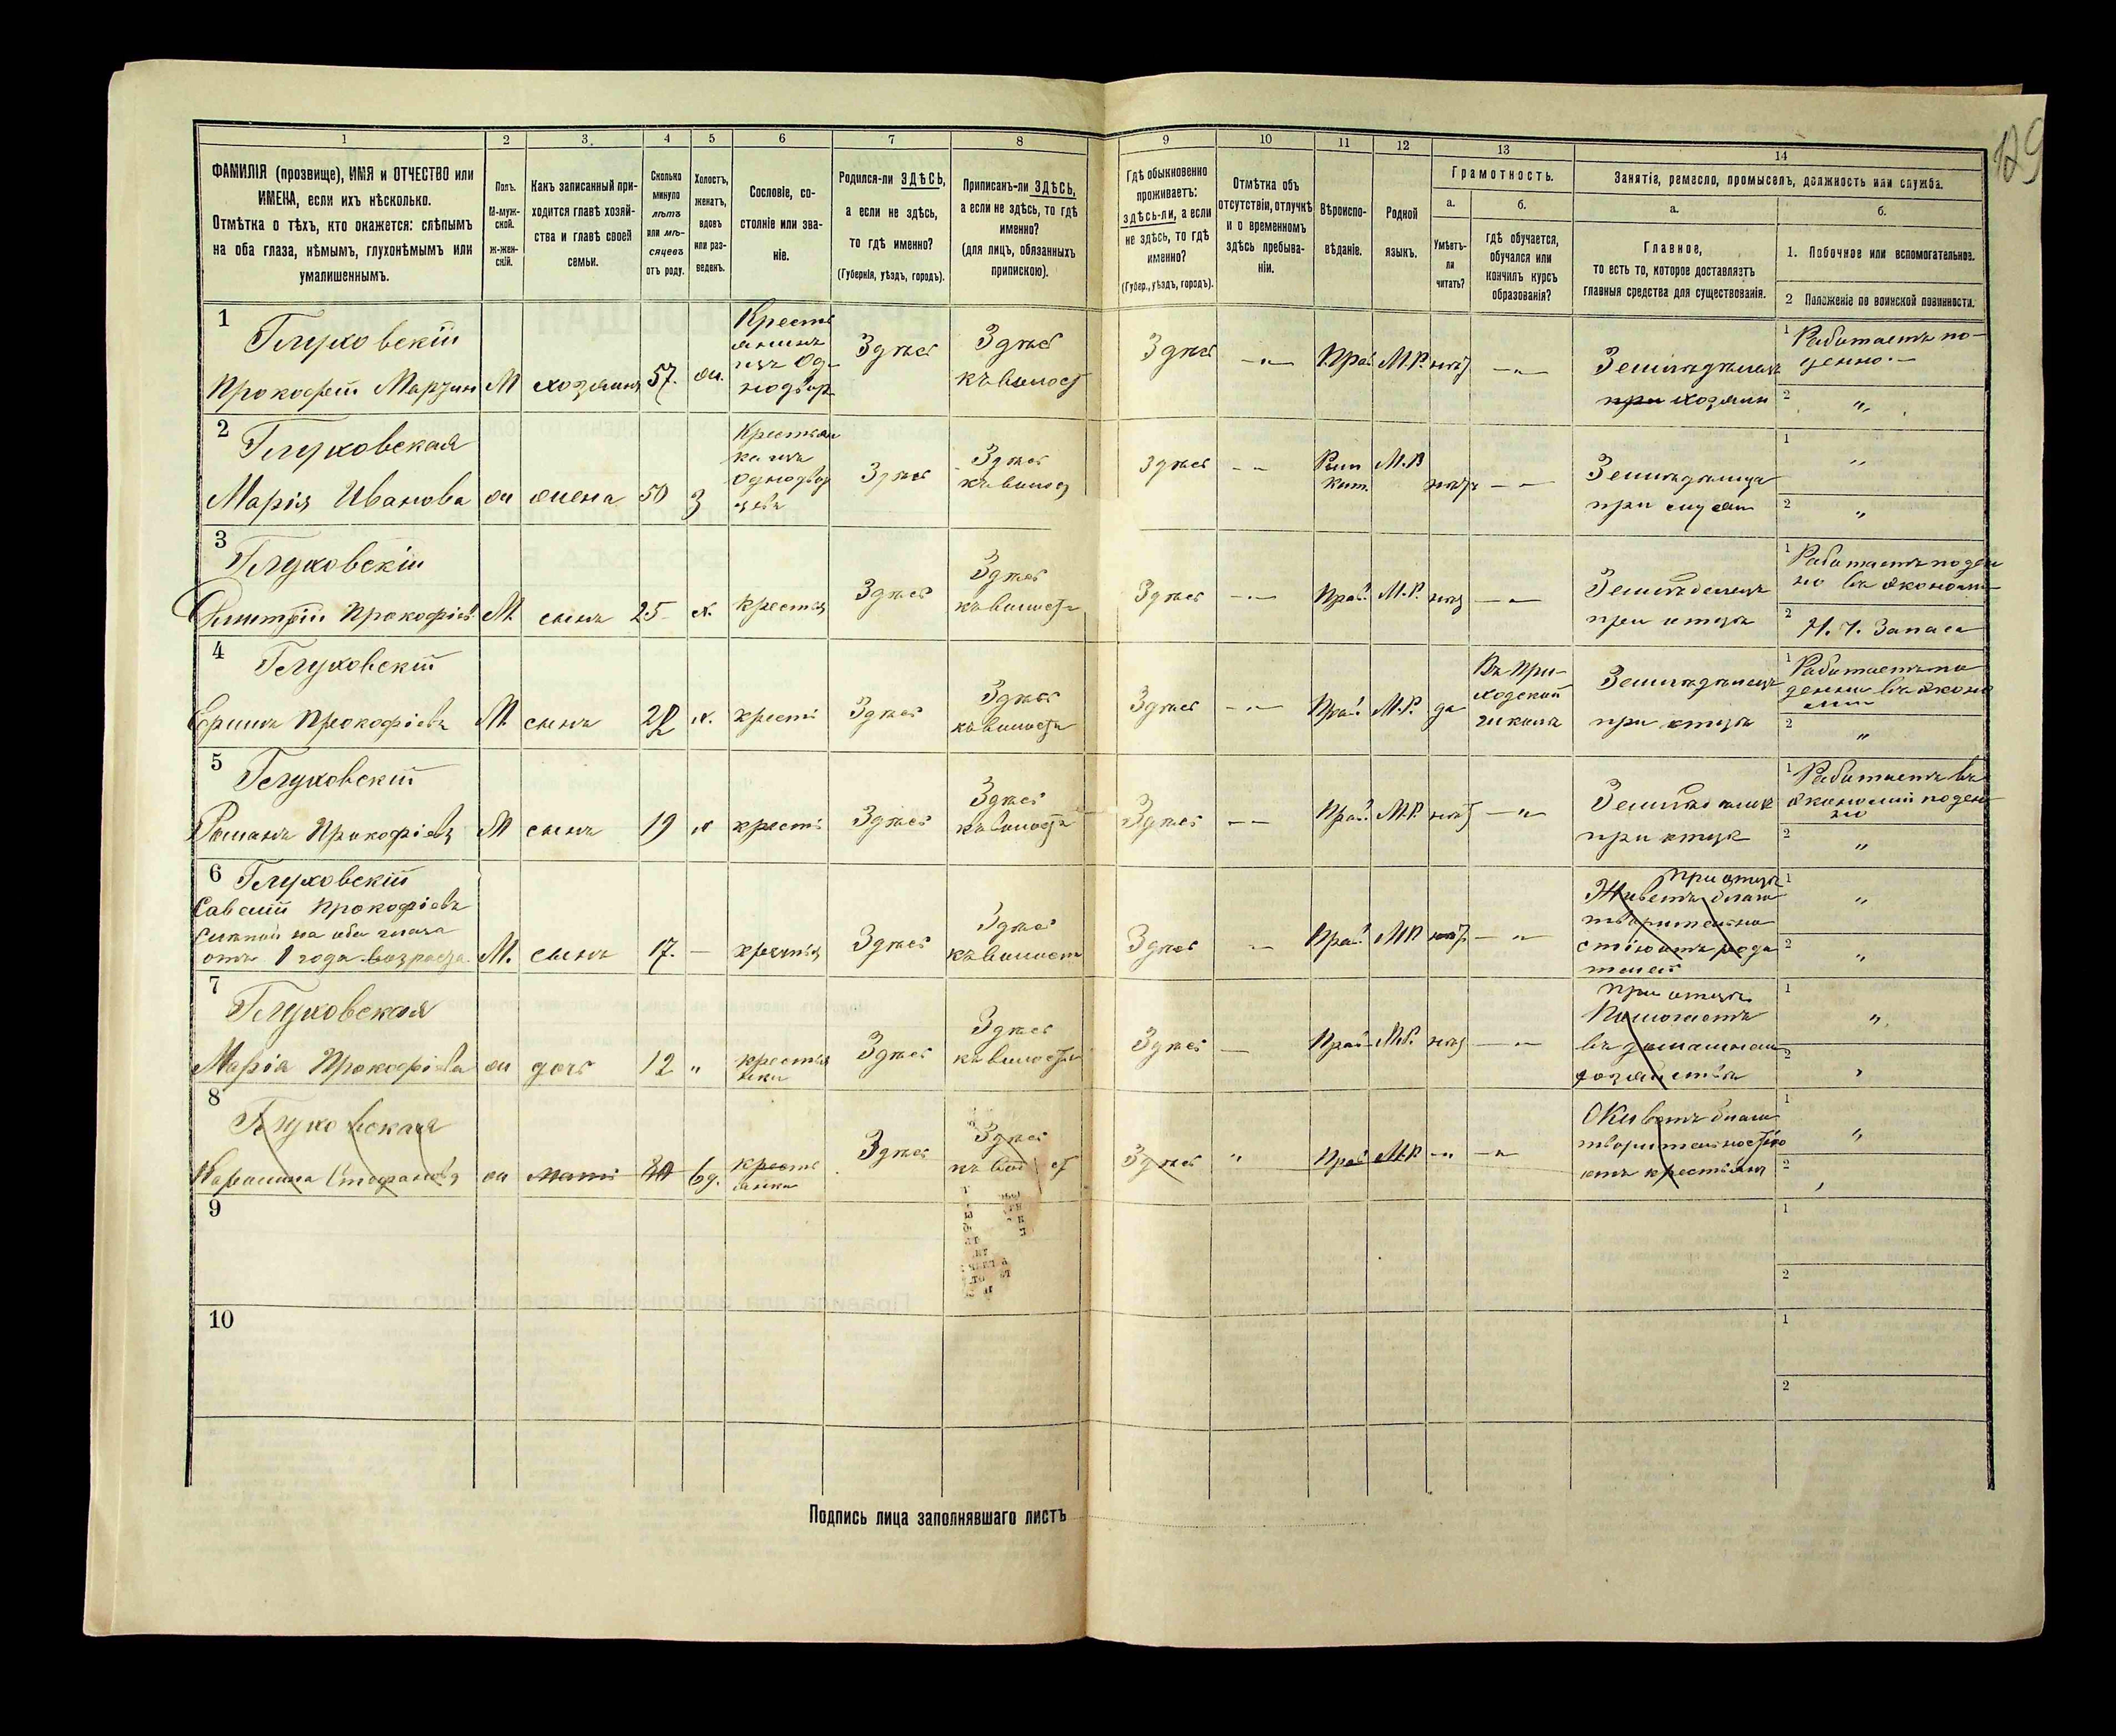 129
1 2 3. 4 5 6 7 8 9 10 11 12 13 14
ФАМИЛІЯ (прозвище), ИМЯ и ОТЧЕСТВО или
ИМЕНА, если ихъ нѣсколько.
Отмѣтка о тѣхъ, кто окажется: слѣпымъ
на оба глаза, нѣмымъ, глухонѣмымъ или
умалишеннымъ.
Полъ.
М-муж-
ской.
ж-жен-
скій.
Какъ записанный при-
ходится главѣ хозяй-
ства и главѣ своей
семьи.
Сколько
минуло
лѣтъ
или мѣ-
сяцевъ
отъ роду.
Холостъ,
женатъ,
вдовъ
или раз-
веденъ.
Сословіе, со-
стояніе или зва-
ніе.
Родился-ли ЗДѢСЬ,
а если не здѣсь,
то гдѣ именно?
(Губернія, уѣздъ, городъ).
Приписанъ-ли ЗДѢСЬ,
а если не здѣсь, то гдѣ
именно?
(для лицъ, обязанныхъ
припискою).
Гдѣ обыкновенно
проживаетъ:
здѣсь-ли, а если
не здѣсь, то гдѣ
именно?
(Губер., уѣздъ, городъ).
Отмѣтка объ
отсутствіи, отлучкѣ
и о временномъ
здѣсь пребыва-
ніи.
Вѣроиспо-
вѣданіе.
Родной
языкъ.
Грамотность.
а.
Умѣетъ-
ли
читать?
б.
гдѣ обучается,
обучался или
кончилъ курсъ
образованія?
Занятія, ремесло, промыселъ, должность или служба.
а.
Главное,
то есть то, которое доставляетъ
главныя средства для существованія.
б.
1. Побочное или вспомогательное.
2 Положеніе по воинской повинности.
1
Глуховскій
Прокофей Марзин
М
хозяинъ
57.
ж.
Кресть
янинъ
изъ Од-
нодвор
Здѣсь
Здѣсь
къ волост
Здѣсь
— „ —
Прав.
М.Р.
нѣт
— „ —
Земледѣлецъ
при хозяин
1 Работаетъ по-
денно. —
2 „
2
Глуховская
Марія Иванова
ж
жена
50
з
Крестьян
ка изъ
Однодвор
цевъ
Здѣсь
Здѣсь
къ волост
Здѣсь
— —
Рим
Кат.
М.Р.
нѣтъ
— —
Земледѣлица
при мужѣ
1 „
2 „
3
Глуховскій
Дмитрій Прокофіев
М.
сынъ
25
х.
крестья
Здѣсь
Здѣсь
къ волости
Здѣсь
— „ —
Прав.
М.Р.
нѣт
— „ —
Земледѣлецъ
при отцѣ
1 Работаетъ поден
но въ экономи
2 Н. Ч. Запаса
4
Глуховскій
Ефимъ Прокофіевъ
М
сынъ
22
х.
кресть
Здѣсь
Здѣсь
къ волости
Здѣсь
— „ —
Прав.
М.Р.
да
Въ При-
ходской
школѣ
Земледѣлецъ
при отцѣ
1 Работаетъ по
денно въ эконо
міи
2 „
5
Глуховскій
Романъ Прокофіевъ
М
сынъ
19
х
кресть
Здѣсь
Здѣсь
къ волости
Здѣсь
— —
Прав.
М.Р.
нѣт
— „
Земледѣлец
при отцѣ
1 Работаетъ въ
экономіи поден
но
2 „
6 Глуховскій
Савелій Прокофіевъ
Слѣпой на оба глаза
отъ 1 года возраста.
М.
сынъ
17.
—
крестья
Здѣсь
Здѣсь
къ волост
Здѣсь
—
Прав.
МР
нѣт.
— „
при отцѣ
Живетъ благо
творительно
стію отъ роди
телей
1 „
2 „
7
Глуховская
Марія Прокофіева
ж
дочь
12
„
крестья
нка
Здѣсь
Здѣсь
къ волости
Здѣсь
—
Прав.
М.Р.
нѣт
— „
при отцѣ
Помогаетъ
въ домашнем
хозяйствѣ
1 „
2 „
8
Глуховская
Степанова
ж
мать
вд.
кресть
янка
Здѣсь
Здѣсь
къ вол ст
Здѣсь
„
Прав
М.Р.
— „
— „
Живетъ благо
творительностію
отъ крестьянъ
1 „
2 „
9
1
2
10
1
2
Подпись лица заполнявшаго листъ